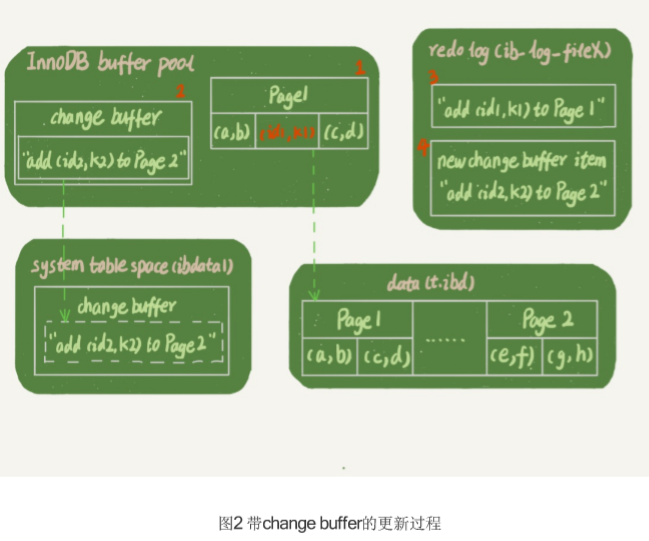 InnoDB buffer pool
1
2
Page1
change buffer
(a,b) (id1,k1) (c,d)
"add (id2,k2) to Page 2"
redo log (ib-log-fileX)
3
"add (id1,k1) to Page 1"
4
new change buffer item
"add (id2,k2) to Page 2"
system table space (ibdata1)
change buffer
"add (id2,k2) to Page 2"
data (t.ibd)
Page1 ...... Page 2
(a,b) (c,d) (e,f) (g,h)
图2 带change buffer的更新过程